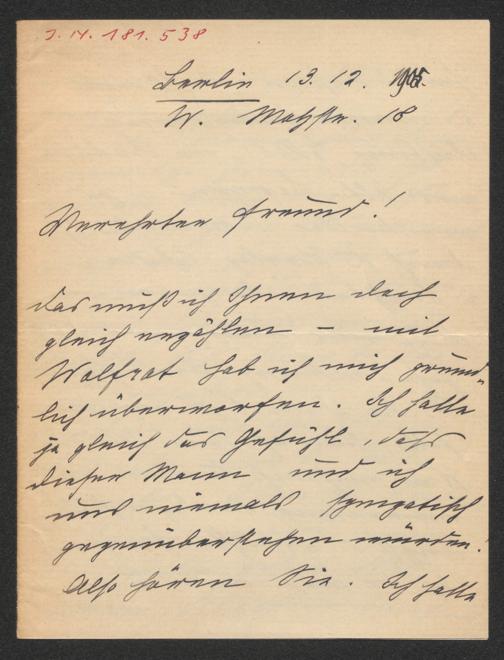 J.N. 181.538
Berlin 13.12. 1905.
W. Motzstr. 18
Verehrter Freund!
Das muß ich Ihnen doch
gleich erzählen – mit
Wolfrat hab ich mich gründ-
lich überworfen. Ich hatte
ja gleich das Gefühl, dass
dieser Mann und ich
uns niemals sympatisch
gegenüberstehen würden.
Also hören Sie. Ich hatte